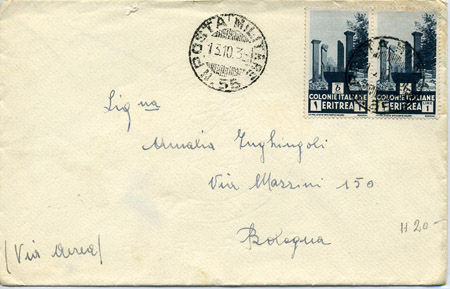 POSTA MILITARE
13.10.3
N. 55
COLONIE ITALIANE
1 ERITREA
COLONIE ITALIANE
ERITREA 1
Sig na
Amalia Inghingoli
Via Mazzini 150
Bologna
(Via Aerea)
H 20-